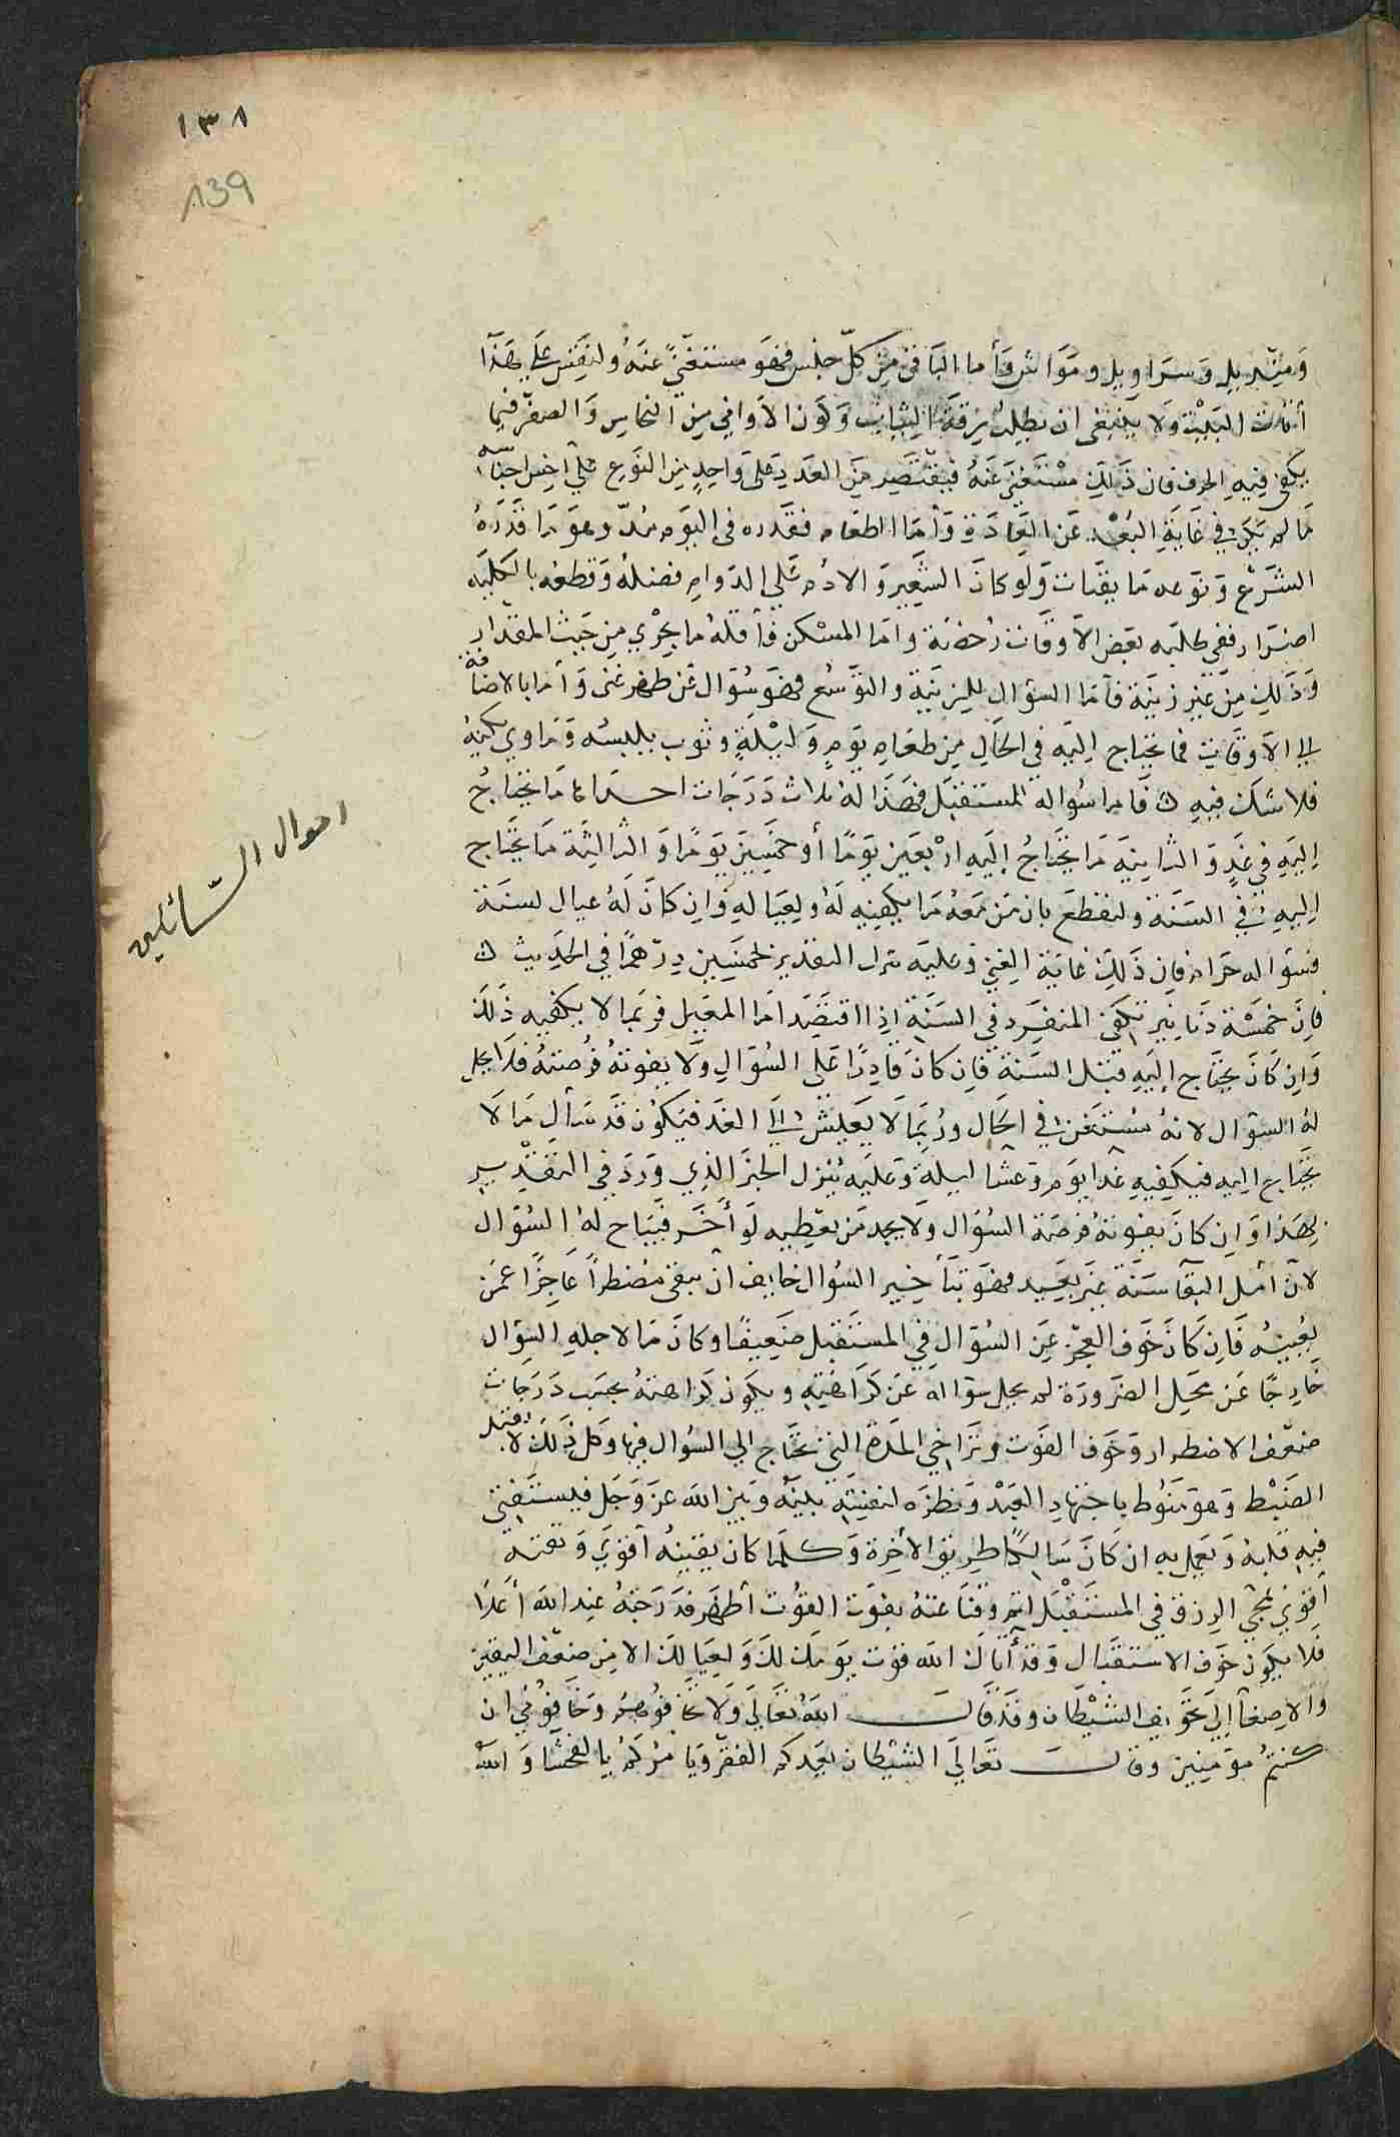 ١٣٨
139
ومنديل وسراويل ومداس وأما الباقي من كل جنس فهو مستغنى عنه وليقس على هذا
أثاث البيت ولا ينبغي ان يطلب رقة الثياب وكون الأواني من النحاس والصفر فيما
يكفي فيه الخزف فان ذلك مستغنى عنه فيقتصر من العدد على واحد ومن النوع على أخس أجناسه
ما لم يكن في غاية البعد عن العادة وأما الطعام فقدره في اليوم مد وهو ما قدره
الشرع ونوعه ما يقتات ولو كان الشعير والادم على الدوام فضلة وقطعه بالكلية
اضرار ففي طلبه بعض الاوقات رخصة واما المسكن فأقله ما يجزي من حيث المقدار
وذلك من غير زينة فأما السؤال للزينة والتوسع فهو سؤال عن ظهر غنى وأما بالاضافة
الى الاوقات فما يحتاج اليه في الحال من طعام يوم وليلة وثوب يلبسه ومأوي يكنه
فلا شك فيه ن فأما سؤاله للمستقبل فهذا له ثلاث درجات احداها ما يحتاج
إليه في غد والثانية ما يحتاج إليه اربعين يوما أو خمسين يوما والثالثة ما يحتاج
اليه في السنة ولنقطع بان من معه ما يكفيه له ولعياله وان كان له عيال لسنة
فسؤاله حرام فان ذلك غاية الغنى وعليه نزل التقدير بخمسين درهما في الحديث ن
فان خمسة دنانير تكفي المنفرد في السنة اذا اقتصد اما المعيل فربما لا يكفيه ذلك
وان كان يحتاج إليه قبل السنة فان كان قادرا على السؤال ولا يفوته فرصته فلا يحل
له السؤال لانه مستغن في الحال وربما لا يعيش الى الغد فيكون قد سأل ما لا
يحتاج اليه فيكفيه غدا يوم وعشا ليلة وعليه ينزل الخبر الذي ورد في التقدير
بهذا وان كان يفوته فرصة السؤال ولا يجد من يعطيه لو أخر فيباح له السؤال
لان أمل البقآ سنة غير بعيد فهو بتأخير السؤال خايف ان يبقى مضطرا عاجزا عمن
يعينه فان كان خوف العجز عن السؤال في المستقبل ضعيفا وكان ما لاجله السؤال
خارجا عن محل الضرورة لم يحل سؤاله عن كراهية ويكون كراهته بحسب درجات
ضعف الاضطرار وخوف الفوت وتراخي المدة التي يحتاج الي السؤال فيها وكل ذلك لا يقبل
الضبط وهو منوط باجتهاد العبد ونظره لنفسه بينه وبين الله عز وجل فيستفتي
فيه قلبه ويعمل به ان كان سالكا طريق الأخرة وكلما كان يقينه أقوى وثقته
أقوى بمجي الرزق في المستقبل اتم وقناعته بقوت الوقت أظهر فدرجته عند الله أعلا
فلا يكون خوف الاستقبال وقد أتاك الله قوت يومك لك ولعيالك الا من ضعف اليقين
والاصغآ إلى تخويف الشيطان وقد قال الله تعالى ولا تخافوهم وخافوني ان
كنتم مؤمنين وقال تعالى الشيطان يعدكم الفقر ويأمركم بالفحشا والله
احوال السّائلين